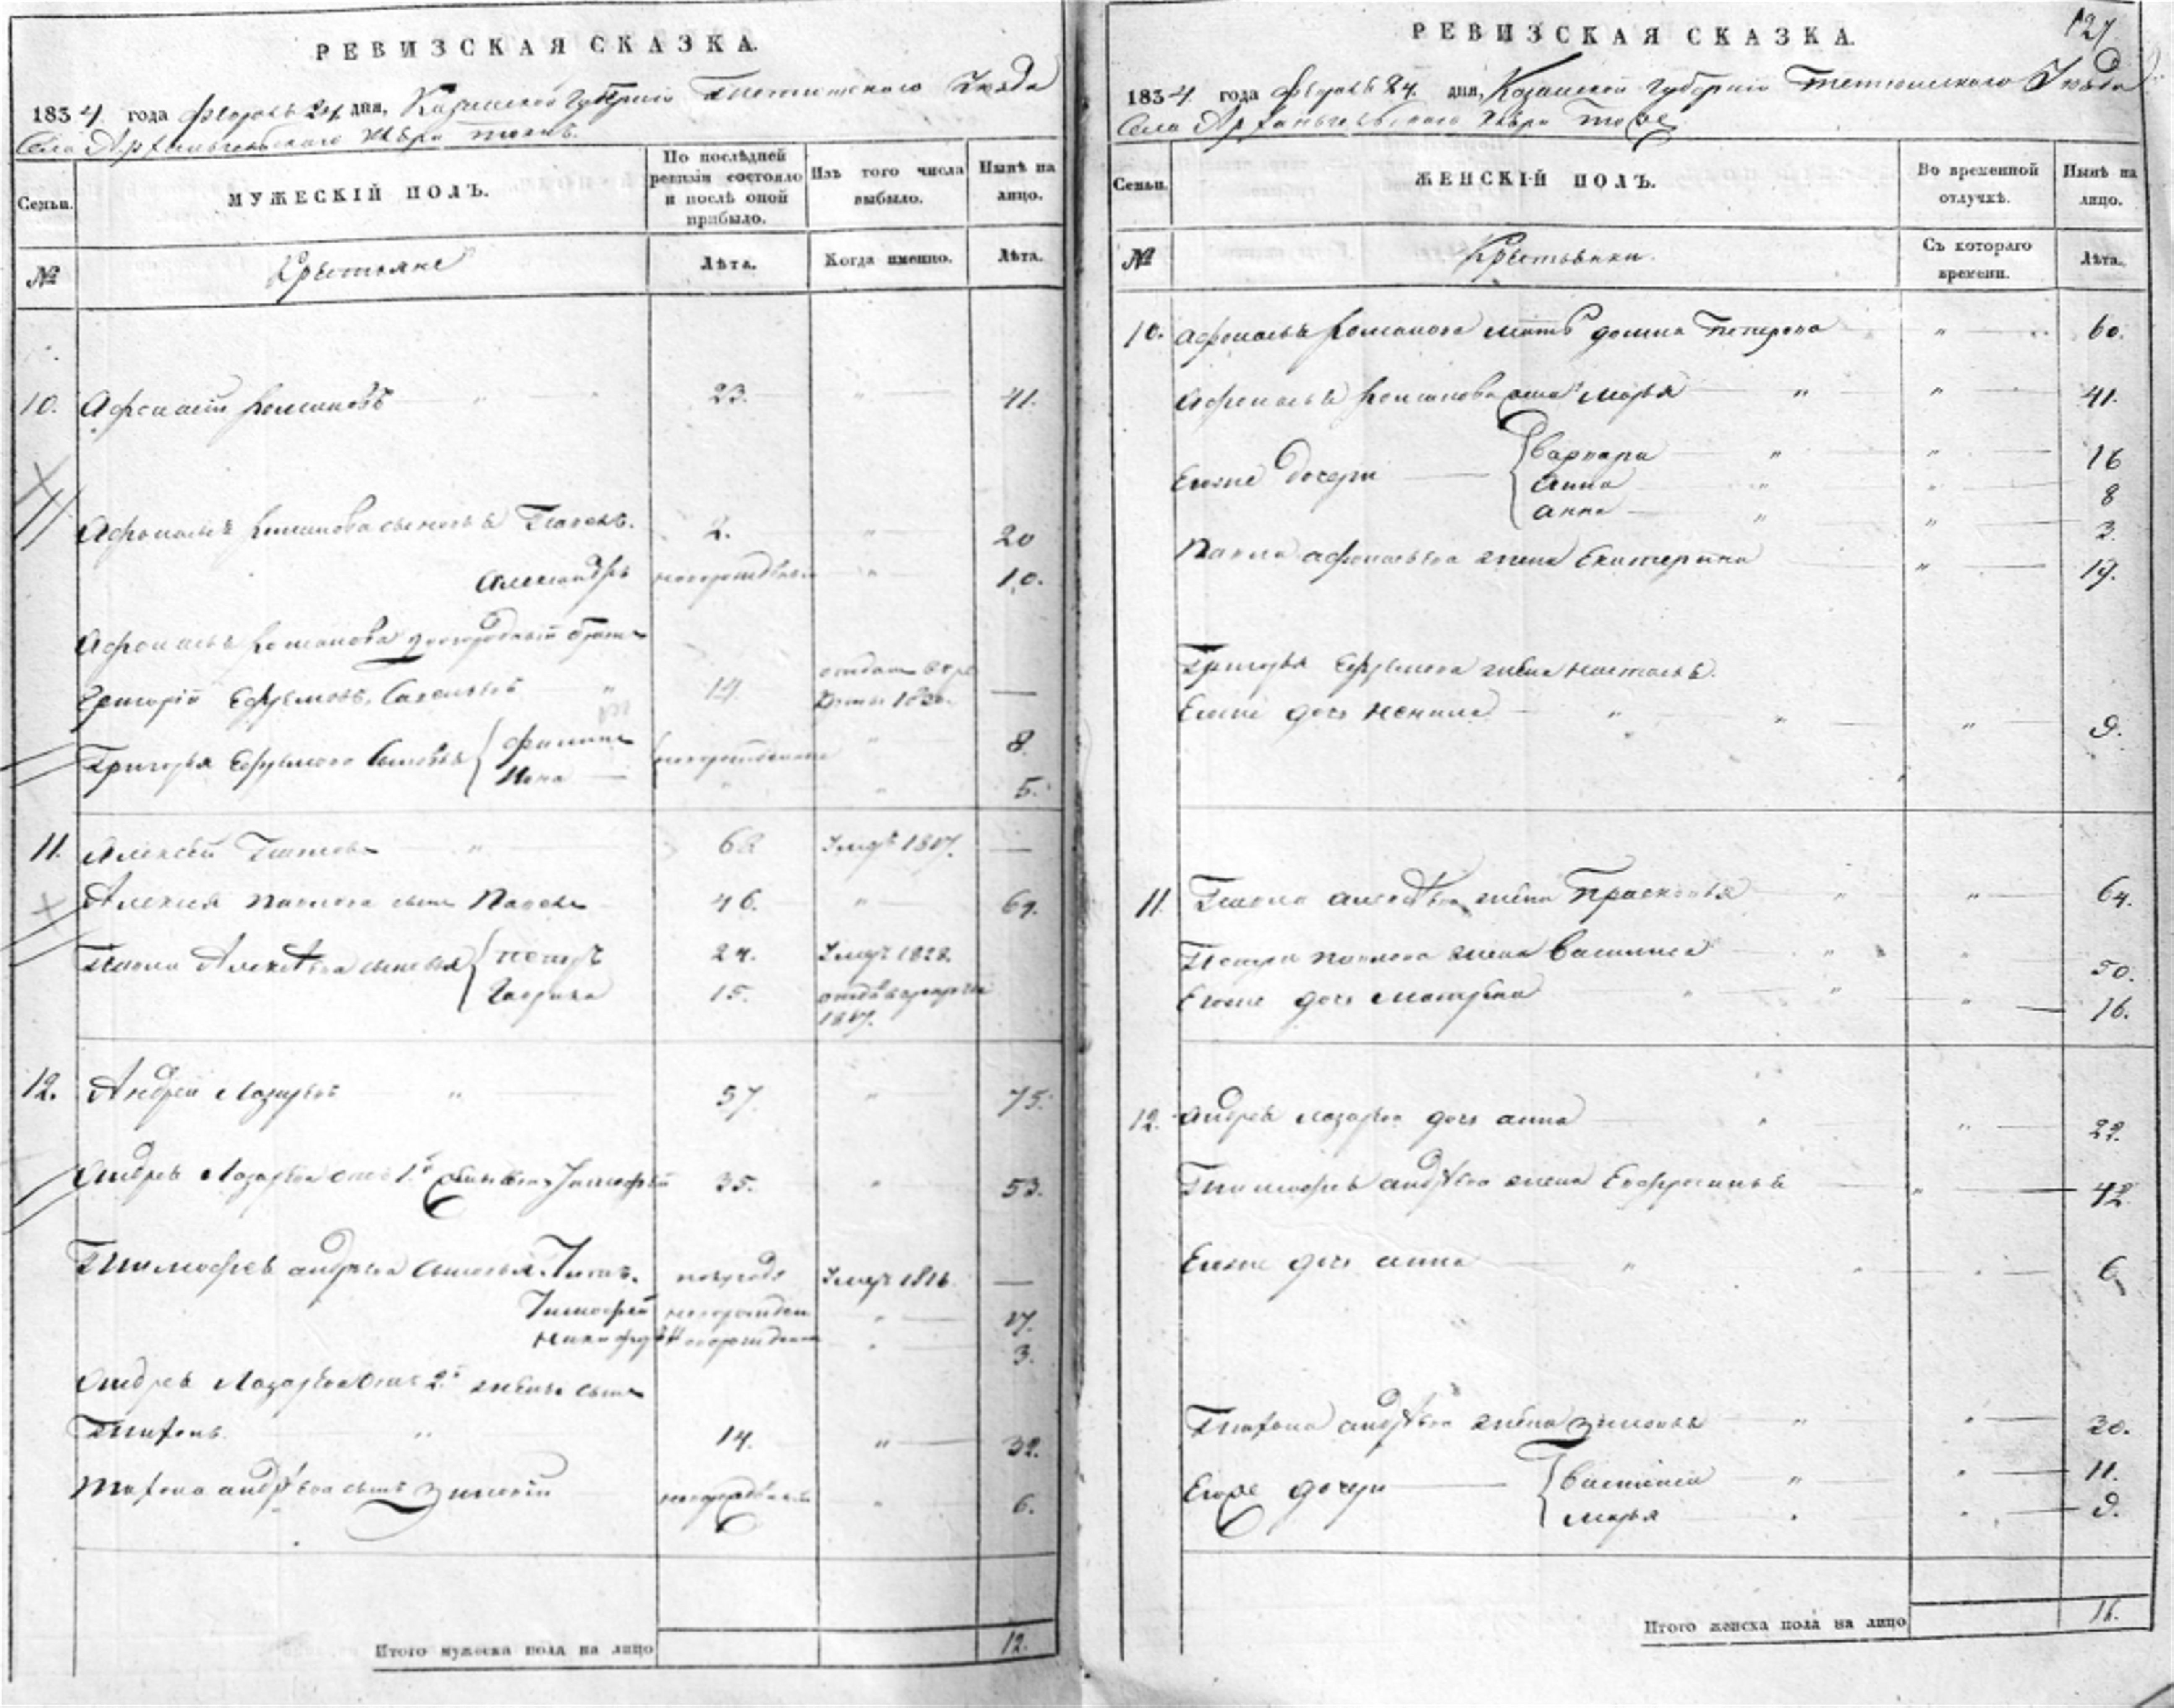 РЕВИЗСКАЯ СКАЗКА.
1834 года Февраля 24 дня, Казанской Губернии Тетюшского Уезда
Села Архангельского
Семьи.
МУЖЕСКІЙ ПОЛЪ.
По послѣдней ревизіи состояло и послѣ оной прибыло.
Изъ того числа выбыло.
Нынѣ на лицо.
№
Крестьяне
Лѣта.
Когда именно.
Лѣта.
10. Афонасій Романовъ 23. " 41.
Афонасья Романова сыновья Павелъ. 2. " 20
Александръ новорожденъ " 10.
Афонасья Романова двоюродный братъ
Григорій Ефремовъ, Савельевъ " 14 отданъ въ рекруты —
Григорья Ефремова сыновья { Филипъ новорожденные " 8.
Иона — " " 5.
11. Алексей " 62 Умръ 1817. —
Алексея сынъ Павелъ 46. " 64.
Павла Алексѣева сыновья { Петръ 24. Умръ 1828.
Гаврила 15. отданъ в рекруты
1817.
12. Андрей Лазаревъ " 57. " 75.
Андрея Лазарева отъ 1й жены сынъ Тимофей 35. " 53.
Тимофея Андреева сыновья Титъ. полгода Умръ 1816 —
Тимофей новорожден " 17.
Никифоръ новорожден " 3.
Андрея Лазарева отъ 2й жены сынъ
Тихонъ. " 14. " 32.
Тихона Андрѣева сынъ Зиновій новорожденный " 6.
Итого мужеска пола на лицо 12.
127
РЕВИЗСКАЯ СКАЗКА.
1834 года Февраля 24. дня, Казанской Губерніи Тетюшского Уезда
Села Архангельского тоже
Семьи.
ЖЕНСКІЙ ПОЛЪ.
Во временной отлучкѣ.
Нынѣ на лицо.
№
Крестьянки.
Съ котораго времени.
Лѣта.
10. Афонасья Романова мать Домна Петрова " 60.
Афонасья Романова жена Марья " " 41.
Егоже дочери { Варвара " " 16
Анна " " 8
Анна " " 3.
Павла Афонасьева жена Екатерина " 19.
Григорья Ефремова жена Настасья.
Егоже дочь Ненила " " " 9.
11. Павла Алексѣева жена Прасковья " " 64.
Петра Павлова жена Василиса " " 50.
Егоже дочь Матрена " " " 16.
12. Андрея Лазарева дочь Анна " " 22.
Тимофея Андреева жена Евфросинья " 42.
Егоже дочь Анна " " " 6
Тихона Андрѣева жена Зиновья " " 30.
Егоже дочери { Василиса " " 11.
Марья " " 9.
Итого женска пола на лицо 16.